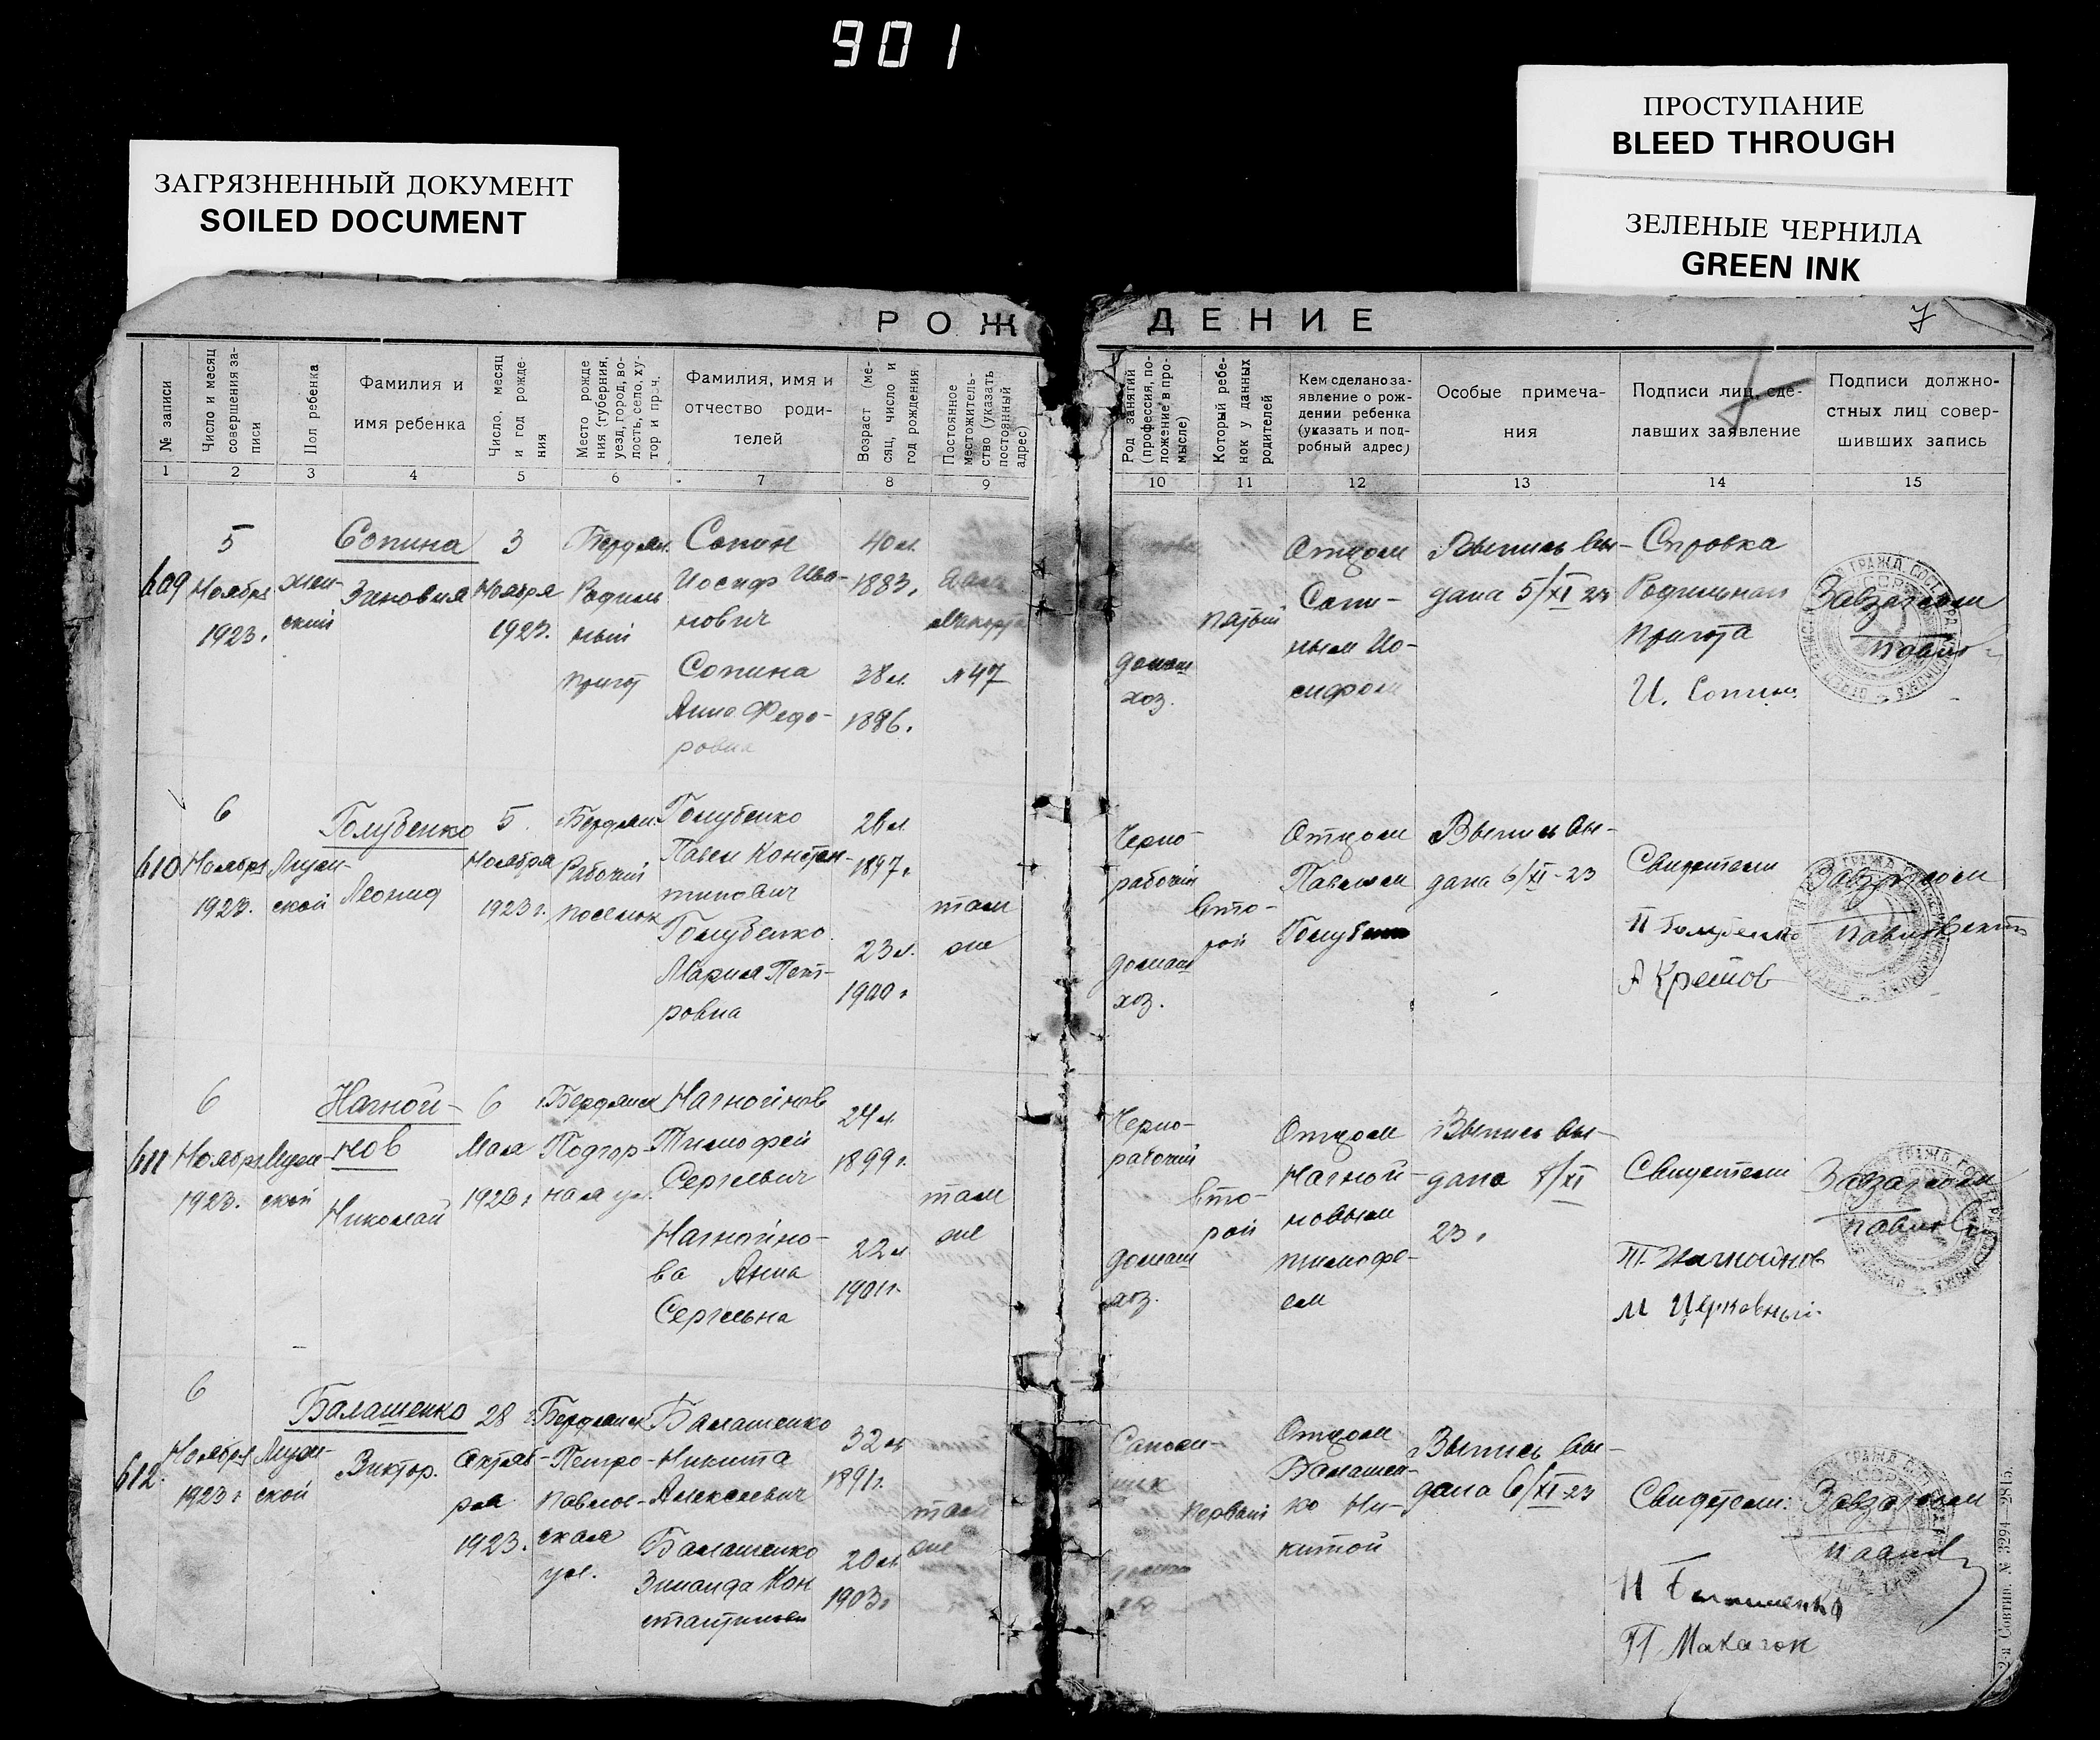 901
ПРОСТУПАНИЕ
BLEED THROUGH
ЗАГРЯЗНЕННЫЙ ДОКУМЕНТ
SOILED DOCUMENT
ЗЕЛЕНЫЕ ЧЕРНИЛА
GREEN INK
РОЖДЕНИЕ
7
№ записи
Число и месяц
совершения за-
писи
Пол ребенка
Фамилия и
имя ребенка
Число, месяц
и год рожде-
ния
Место рожде
ния (губерния,
уезд, город, во-
лость, село, ху-
тор и пр.ч.
Фамилия, имя и
отчество роди-
телей
Возраст (ме-
сяц, число и
год рождения
Постоянное
местожитель-
ство (указать
постоянный
адрес)
Род занятий
(профессия, по-
ложение в про-
мысле)
Который ребе-
нок у данных
родителей
Кем сделано за-
явление о рож-
дении ребенка
(указать и под-
робный адрес)
Особые примеча-
ния
Подписи лиц, сде-
лавших заявление
Подписи должно-
стных лиц совер-
шивших запись
1 2 3 4 5 6 7 8 9 10 11 12 13 14 15
609
5
Ноября
1923.
жен-
ский
Сопина
Зиновия
3
Ноября
1923.
Бердян.
Родиль
ный
приют
Сопин
Иосиф Ива-
нович
Сопина
Анна Федо-
ровна
40 л.
1883.
38 л.
1886.
№ 47
домаш
хоз.
пятый
Отцом
Сопи-
ным Ио-
сифом
Выпись вы-
дана 5/XI 23
Справка
Родильнаго
приюта
И. Сопин
Завзагсом
610
6
Ноября
1923.
Мужс-
ской
Голубенко
Леонид
5
Ноября
1923 г.
Бердян.
Рабочий
поселок
Голубенко
Павел Констан-
тинович
Голубенко
Мария Пет-
ровна
26 л
1897.
23 л.
1900.
там
же
Черно-
рабочий
домаш
хоз.
вто-
рой
Отцом
Павлом
Голубенко
Выпись вы-
дана 6/XI-23
Свидетели
П Голубенко
А Крешов
Завзагсом
611
6
Ноября
1923.
Мужс-
ской
Нагной-
нов
Николай
6
Мая
1923 г
Бердянск
Подгор-
ная ул.
Нагнойнов
Тимофей
Сергеевич
Нагнойно-
ва Анна
Сергеевна
24 л.
1899 г.
22 л
1901 г.
там
же
Черно-
рабочий
домаш
хоз.
вто-
рой
Отцом
Нагной-
новым
тимофе-
ем
Выпись вы-
дана 8/XI
23.
Свидетели
Т. Нагнойнов
М Церковный
Завзагсом
612.
6
Ноября
1923 г
Мужс-
ской
Балашенко
Виктор.
28
Октяб-
ря
1923.
Бердянск
Петро-
павлов-
ская
ул.
Балашенко
Никита
Алексеевич
Балашенко
Зинаида Кон
стантинов
32 л.
1891 г.
20 л.
1903.
там
же
Сапож-
ник
первый
Отцом
Балашен-
ко Ни-
китой
Выпись вы-
дана 6/XI-23
Свидетели:
Н Балашенко
П. Макагон
Завзагсом
2-я Совтип. № 3294—2815.